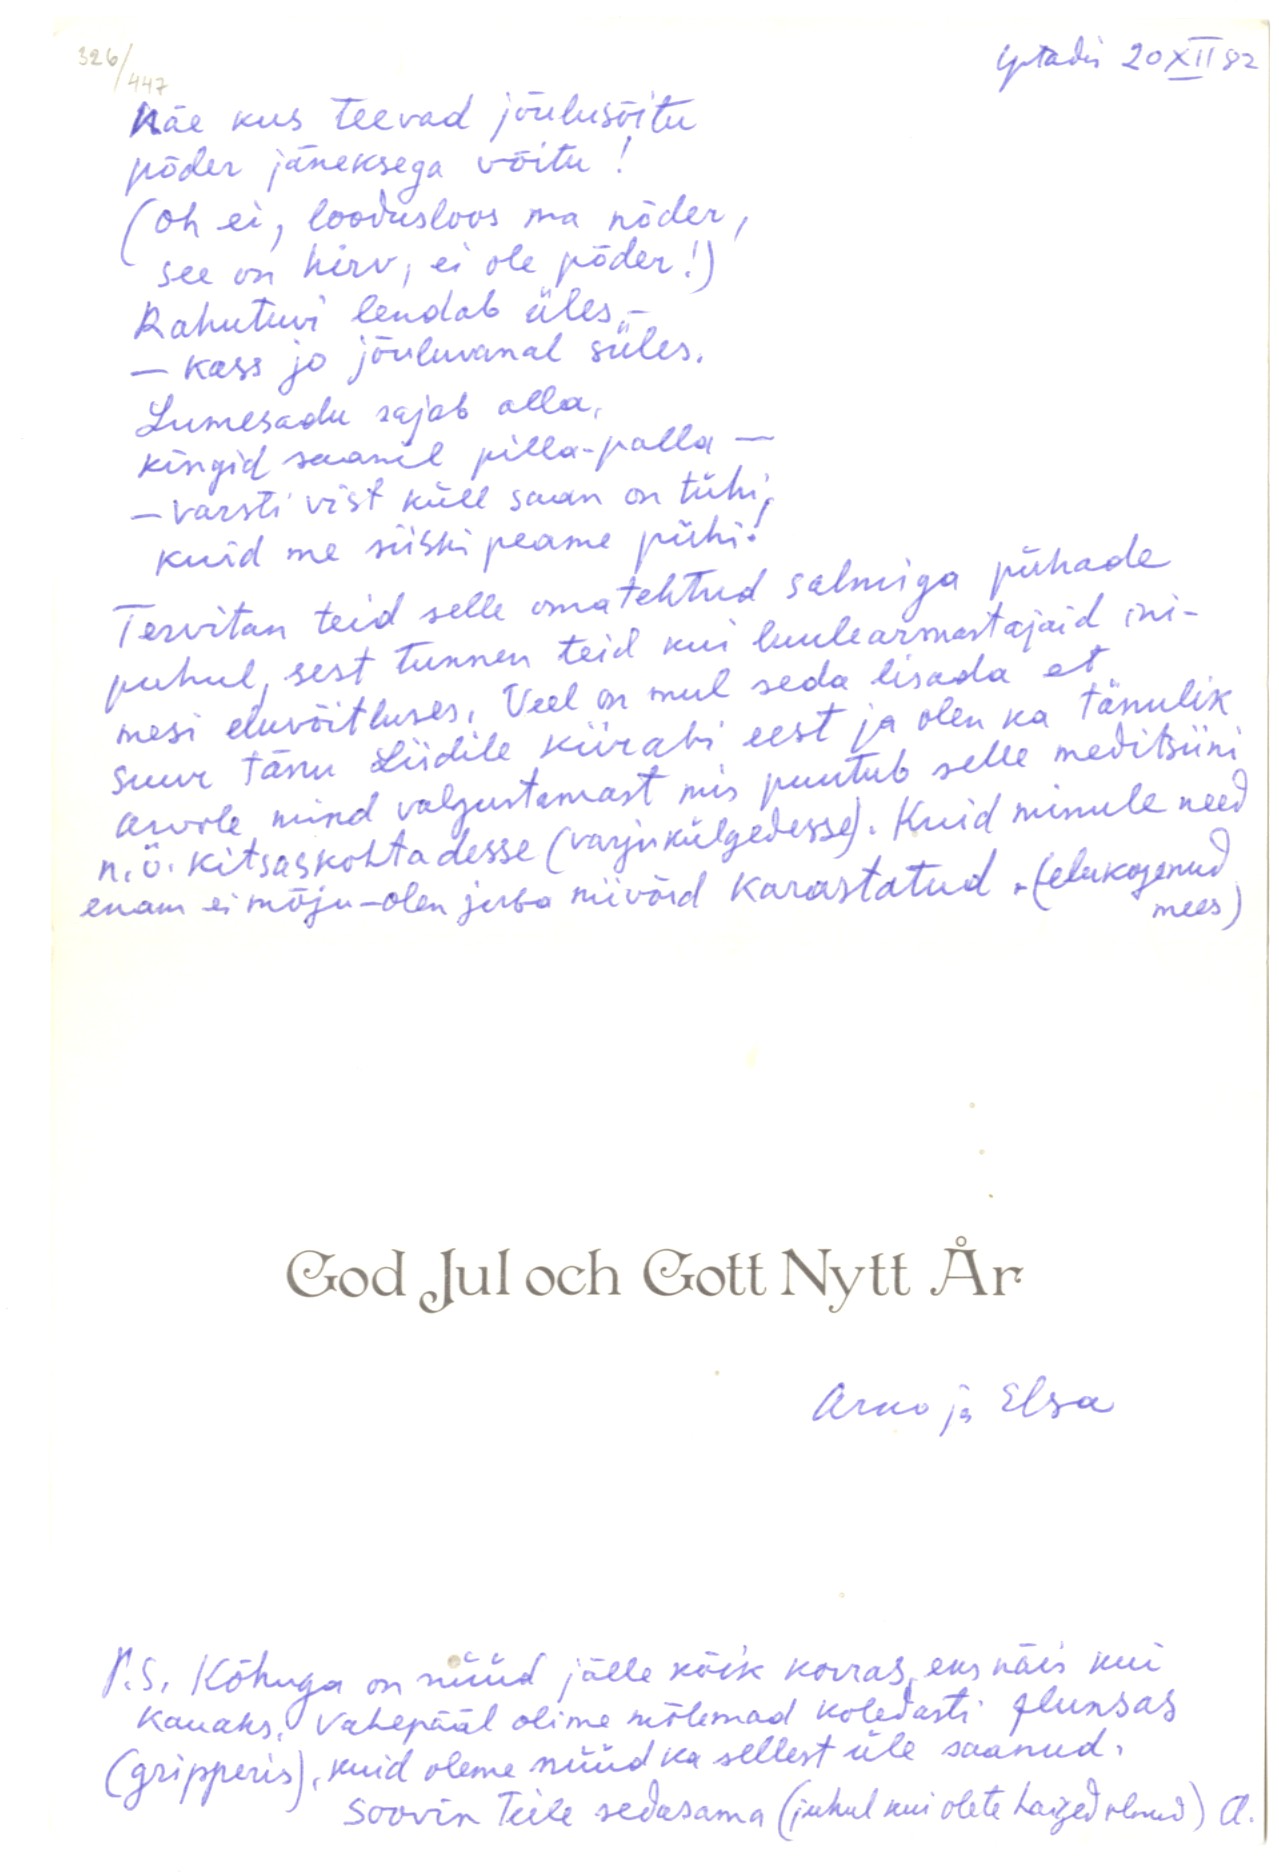 326/447
Ystadis 20 XII 82
Näe kus teevad jõulusõitu
põder jäneksega võitu!
(Oh ei, loodusloos ma nõder,
see on hirv, ei ole põder!)
Rahutuvi lendab üles –
– kass jo jõuluvanal süles.
Lumesadu sajab alla,
kingid saanil pilla-palla —
– varsti vist küll saan on tühi,
kuid me siiski peame pühi!
Tervitan teid selle omatehtud salmiga pühade
puhul, sest tunnen teid kui luulearmastajaid ini-
mesi eluvõitluses. Veel on mul seda lisada et
suur tänu Liidile kiirabi eest ja olen ka tänulik
Arvole mind valgustamast mis puutub selle meditsiini
n.ö. kitsaskohtadesse (varjukülgedesse). Kuid minule need
enam ei mõju – olen juba niivõid karastatud. (elukogenud
mees)
God Jul och Gott Nytt År
Arno ja Elsa
P.S. Kõhuga on nüüd jälle kõik korras, eks näis kui
kauaks. Vahepääl olime mõlemad koledasti flunsas
(gripperis), kuid oleme nüüd ka sellest üle saanud.
Soovin Teile sedasama (juhul kui olete haiged olnud) A.